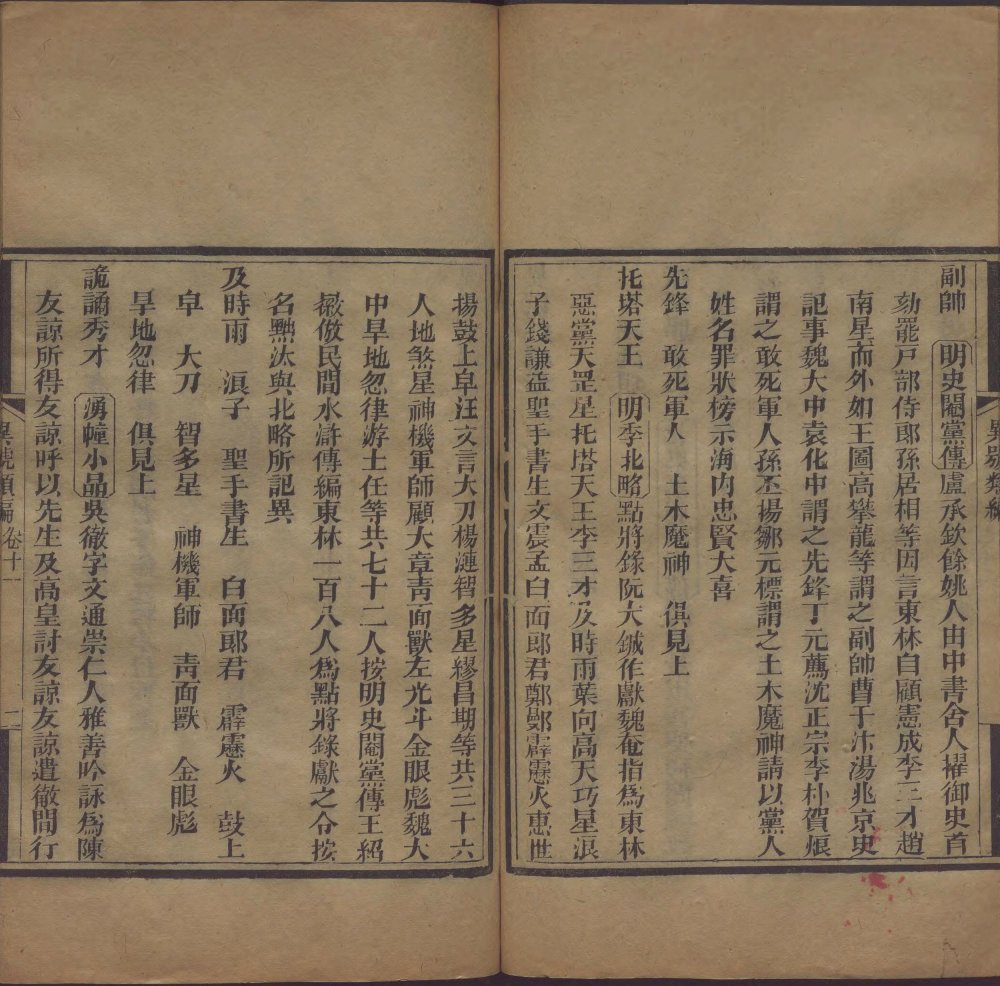 副帥 明史閹黨傳盧承欽餘姚人由中書舍人擢御史首
劾罷戸部侍郎孫居相等因言東林自顧憲成李三才趙
南星而外如王圖高攀龍等謂之副帥曹于汴湯兆京史
記事魏大中袁化中謂之先鋒丁元薦沈正宗李朴賀烺
謂之敢死軍人孫丕揚鄒元標謂之土木魔神請以黨人
姓名罪狀榜示海内忠賢大喜
先鋒 敢死軍人 土木魔神 俱見上
托塔天王 明季北略點將錄阮大鋮作獻魏奄指爲東林
惡黨天罡星托塔天王李三才及時雨葉向高天巧星浪
子錢謙益聖手書生文震孟白面郎君鄭鄤霹靂火惠世
揚鼓上皁汪文言大刀楊漣智多星繆昌期等共三十六
人地煞星神機軍師顧大章靑面獸左光斗金眼彪魏大
中旱地忽律游士任等共七十二人按明史閹黨傳王紹
徽倣民間水滸傳編東林一百八人爲點將錄獻之令按
名黜汰與北略所記異
及時雨 浪子 聖手書生 白面郎君 霹靂火 鼓上
皁 大刀 智多星 神機軍師 靑面獸 金眼彪
旱地忽律 俱見上
詭譎秀才 湧幢小品吳徹字文通崇仁人雅善吟詠爲陳
友諒所得友諒呼以先生及高皇討友諒友諒遣徹間行
異號類編 卷十一 二